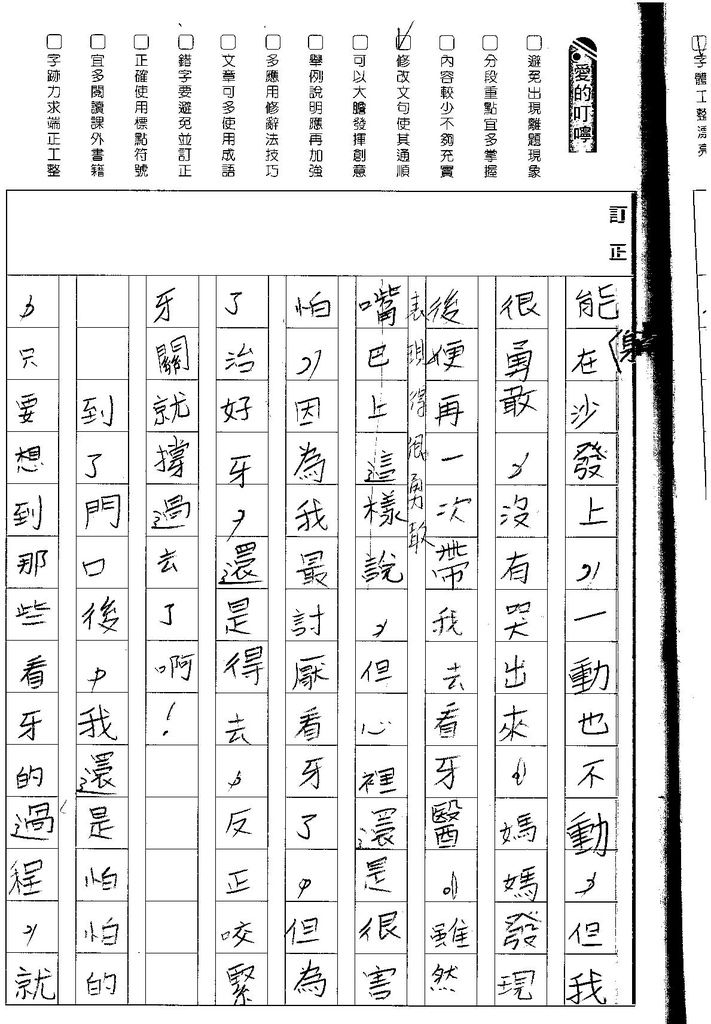 字體工整漂亮
愛的叮嚀
避免出現離題現象
分段重點宜多掌握
內容較少不夠充實
修改文句使其通順
可以大膽發揮創意
舉例說明應再加強
多應用修辭法技巧
文章可多使用成語
錯字要避免並訂正
正確使用標點符號
宜多閱讀課外書籍
字跡力求端正工整
訂正
能在沙發上，一動也不動，但我
很勇敢，沒有哭出來。媽媽發現
後便再一次帶我去看牙醫。雖然
表現得很勇敢
嘴巴上這樣說，但心裡還是很害
怕，因為我最討厭看牙了，但為
了治好牙，還是得去，反正咬緊
牙關就撐過去了啊！
到了門口後，我還是怕怕的
，只要想到那些看牙的過程，就